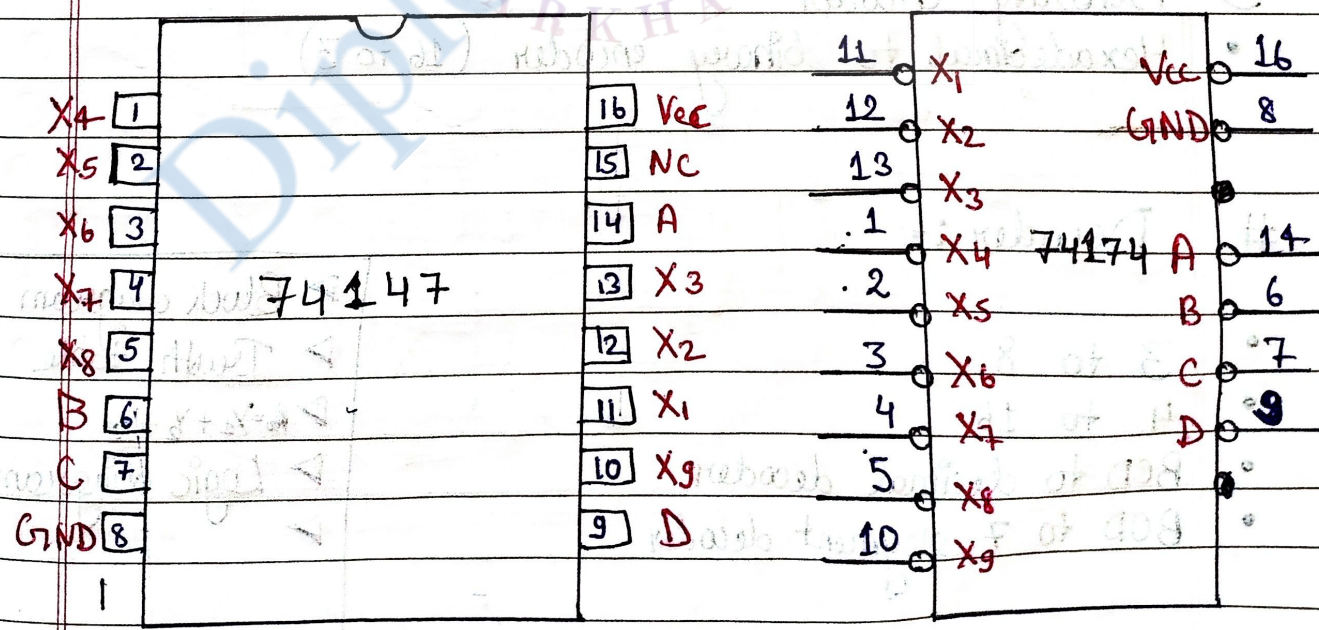 X4 1
X5 2
X6 3
X7 4
X8 5
B 6
C 7
GND 8
74147
16 Vcc
15 NC
14 A
13 X3
12 X2
11 X1
10 X9
9 D
11 X1
12 X2
13 X3
1 X4
2 X5
3 X6
4 X7
5 X8
10 X9
74174
Vcc 16
GND 8
A 14
B 6
C 7
D 9